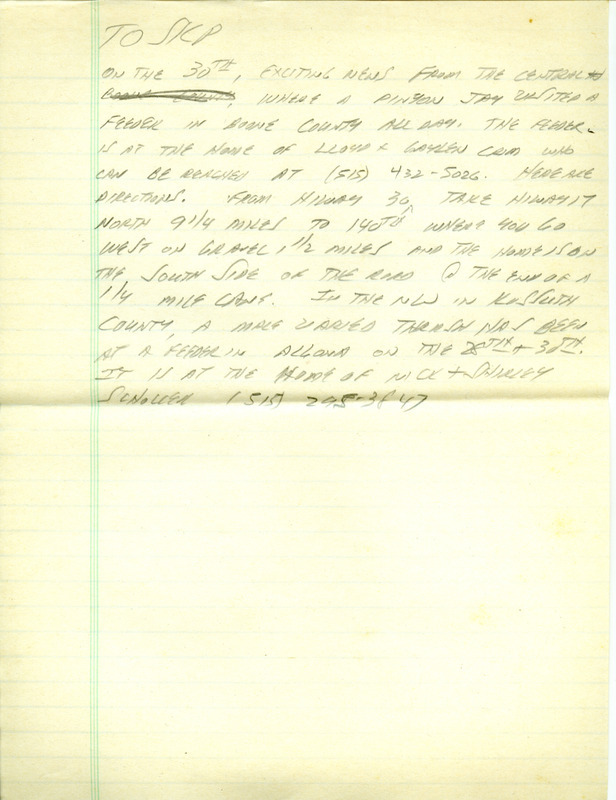 TO SKIP
ON THE 30TH, EXCITING NEWS FROM THE CENTRAL
BOONE COUNTY, WHERE A PINYON JAY VISITED A
FEEDER IN BOONE COUNTY ALL DAY. THE FEEDER
IS AT THE HOME OF LLOYD + GAYLEN CRIM WHO
CAN BE REACHED AT (515) 432-5026. HERE ARE
DIRECTIONS. FROM HIWAY 30, TAKE HIWAY 17
NORTH 9 1/4 MILES TO 140TH WHERE YOU GO
WEST ON GRAVEL 1 1/2 MILES AND THE HOME IS ON
THE SOUTH SIDE OF THE ROAD @ THE END OF A
1/4 MILE LANE. IN THE NW IN KOSSUTH
COUNTY, A MALE VARIED THRUSH HAS BEEN
AT A FEEDER IN ALGONA ON THE 28TH + 30TH.
IT IS AT THE HOME OF NICK + SHIRLEY
(515) 295-3847